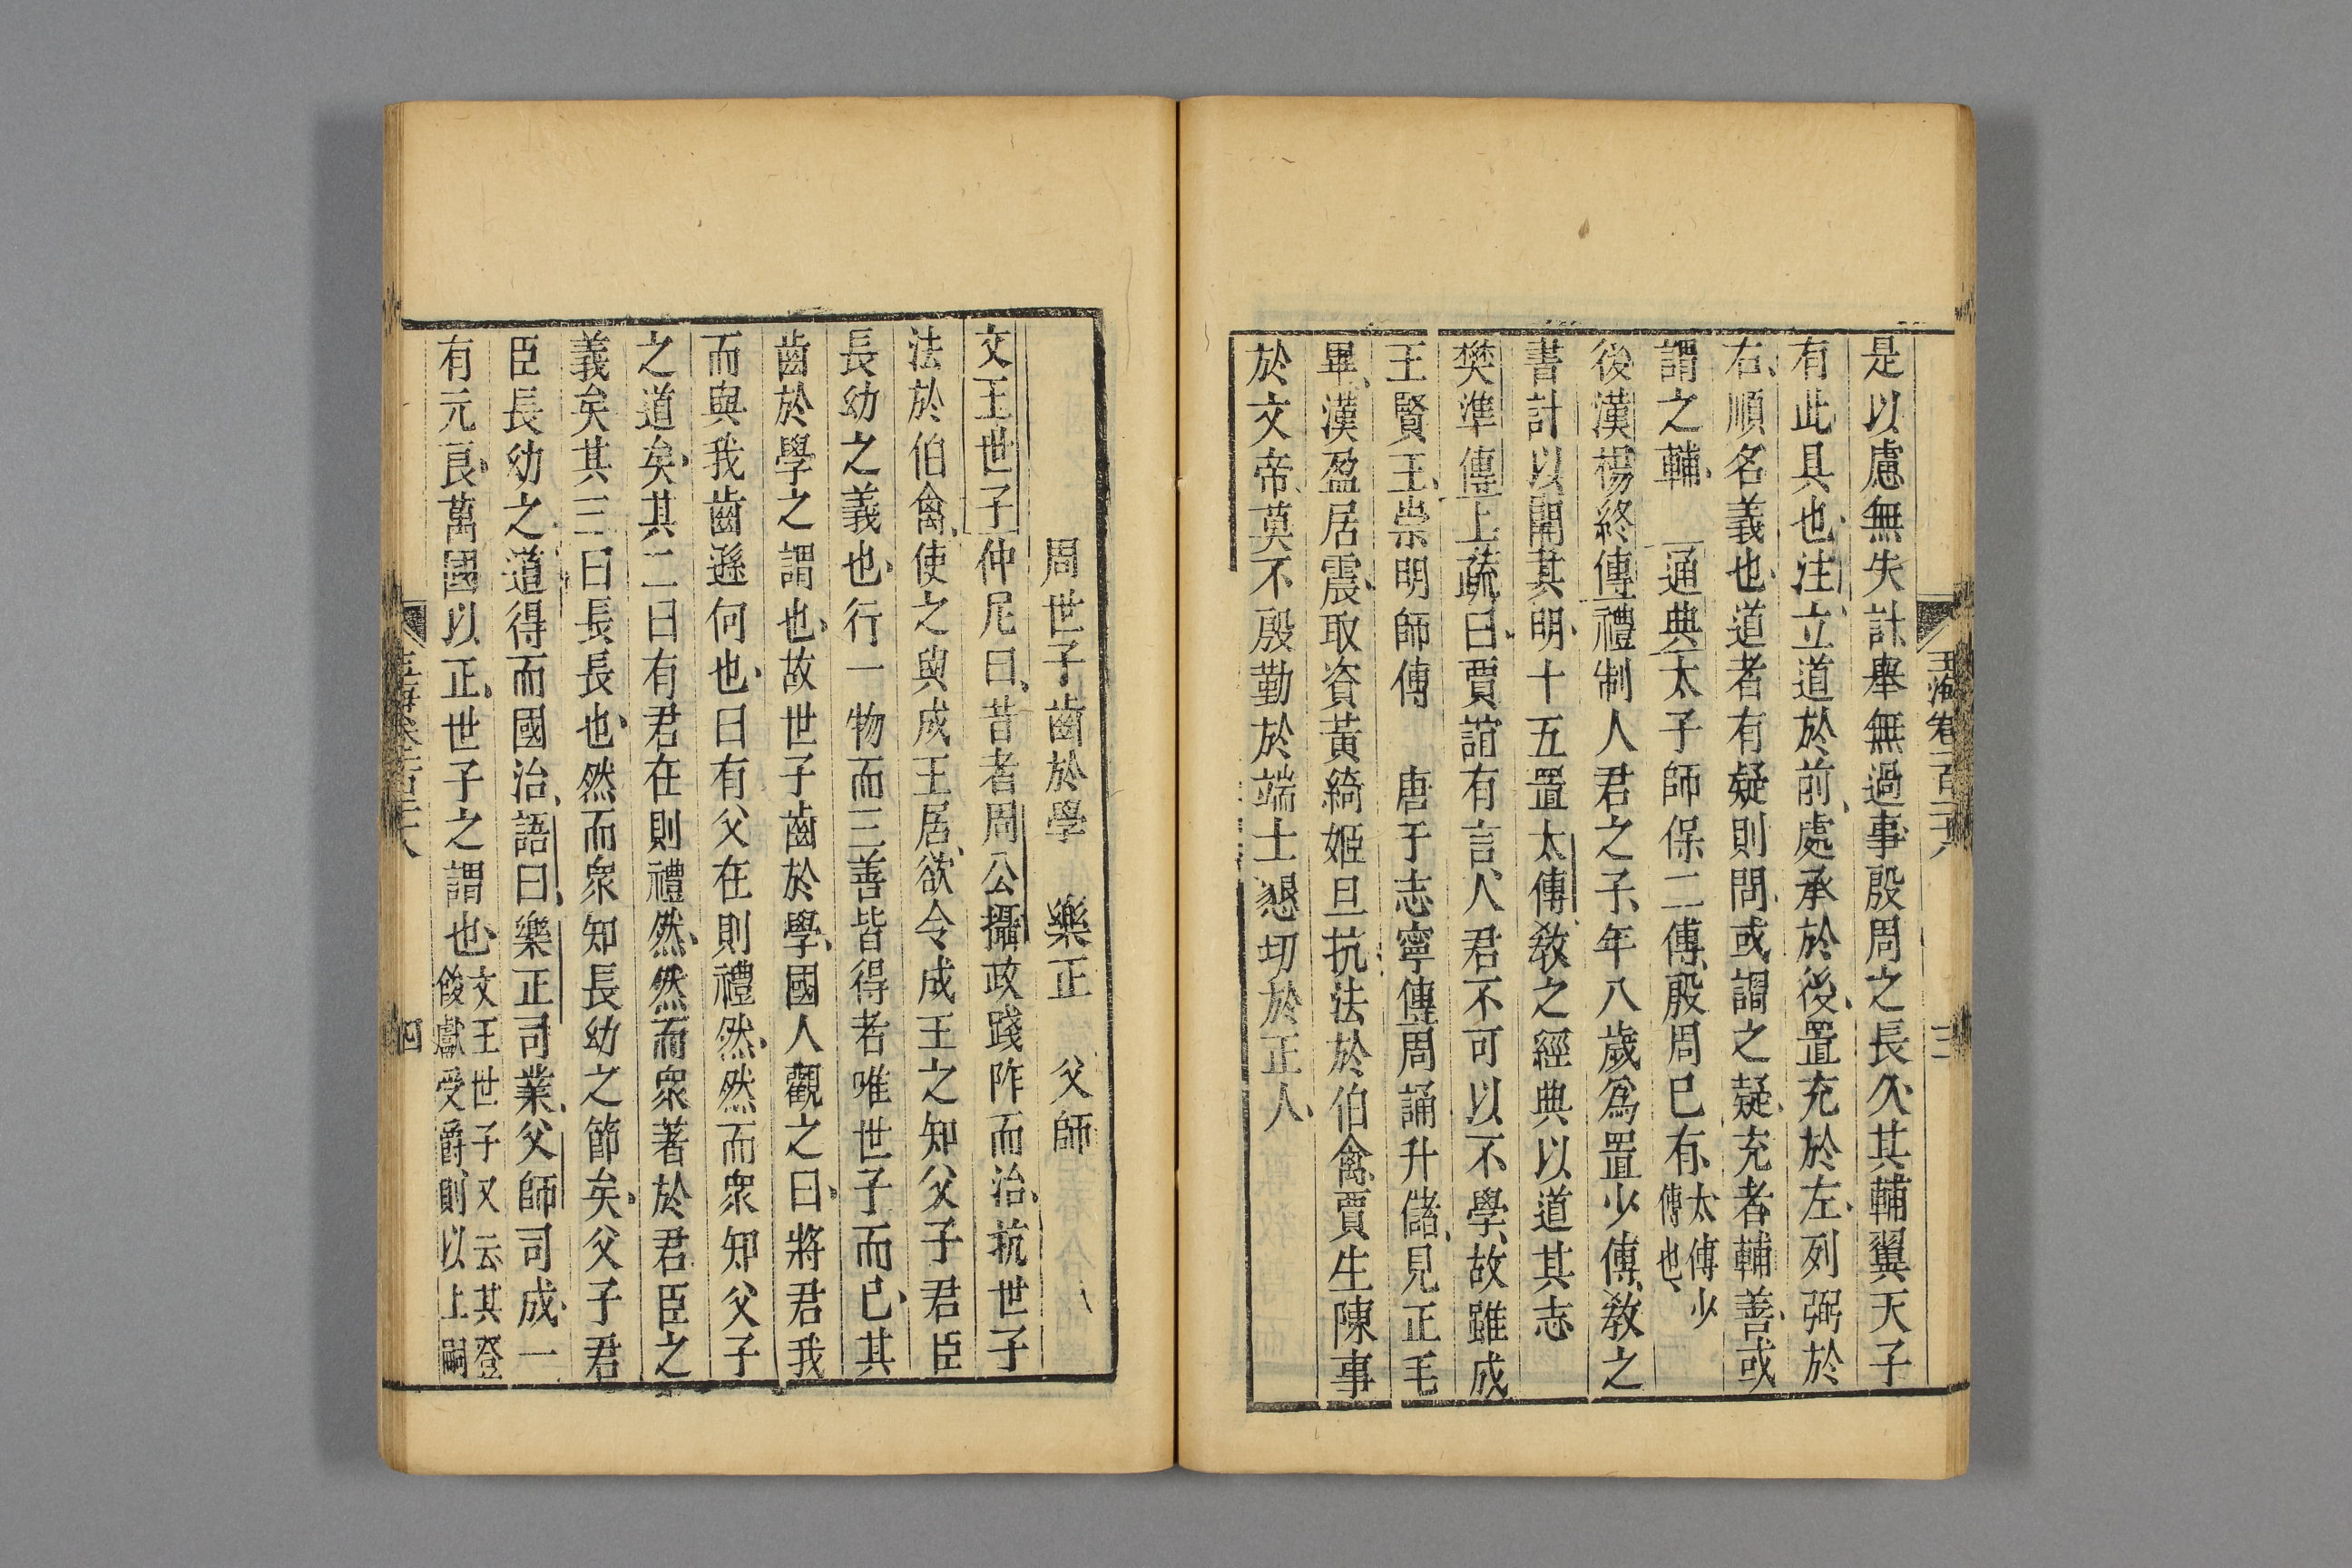 玉海卷一百二十八
三
是以慮無失計舉無過事殷周之長久其輔翼天子
有此具也注立道於前處承於後置充於左列弼於
右順名義也道者有疑則問或謂之疑充者輔善或
謂之輔　通典太子師保二傅殷周已有太傅少傅也
後漢楊終傳禮制人君之子年八歲為置少傅教之
書計以開其明十五置太傅教之經典以道其志
樊準傳上疏曰賈誼有言人君不可以不學故雖成
王賢王崇明師傅　唐于志寧傳周誦升儲見正毛
畢漢盈居震取資黃綺姬旦抗法於伯禽賈生陳事
於文帝莫不殷勤於端士懇切於正人
周世子齒於學　樂正　父師
文王世子仲尼曰昔者周公攝政踐阼而治抗世子
法於伯禽使之與成王居欲令成王之知父子君臣
長幼之義也行一物而三善皆得者唯世子而已其
齒於學之謂也故世子齒於學國人觀之曰將君我
而與我齒遜何也曰有父在則禮然然而眾知父子
之道矣其二曰有君在則禮然然而眾著於君臣之
義矣其三曰長長也然而眾知長幼之節矣父子君
臣長幼之道得而國治語曰樂正司業父師司成一
有元良萬國以正世子之謂也文王世子又云其登餕獻受爵則以上嗣
四